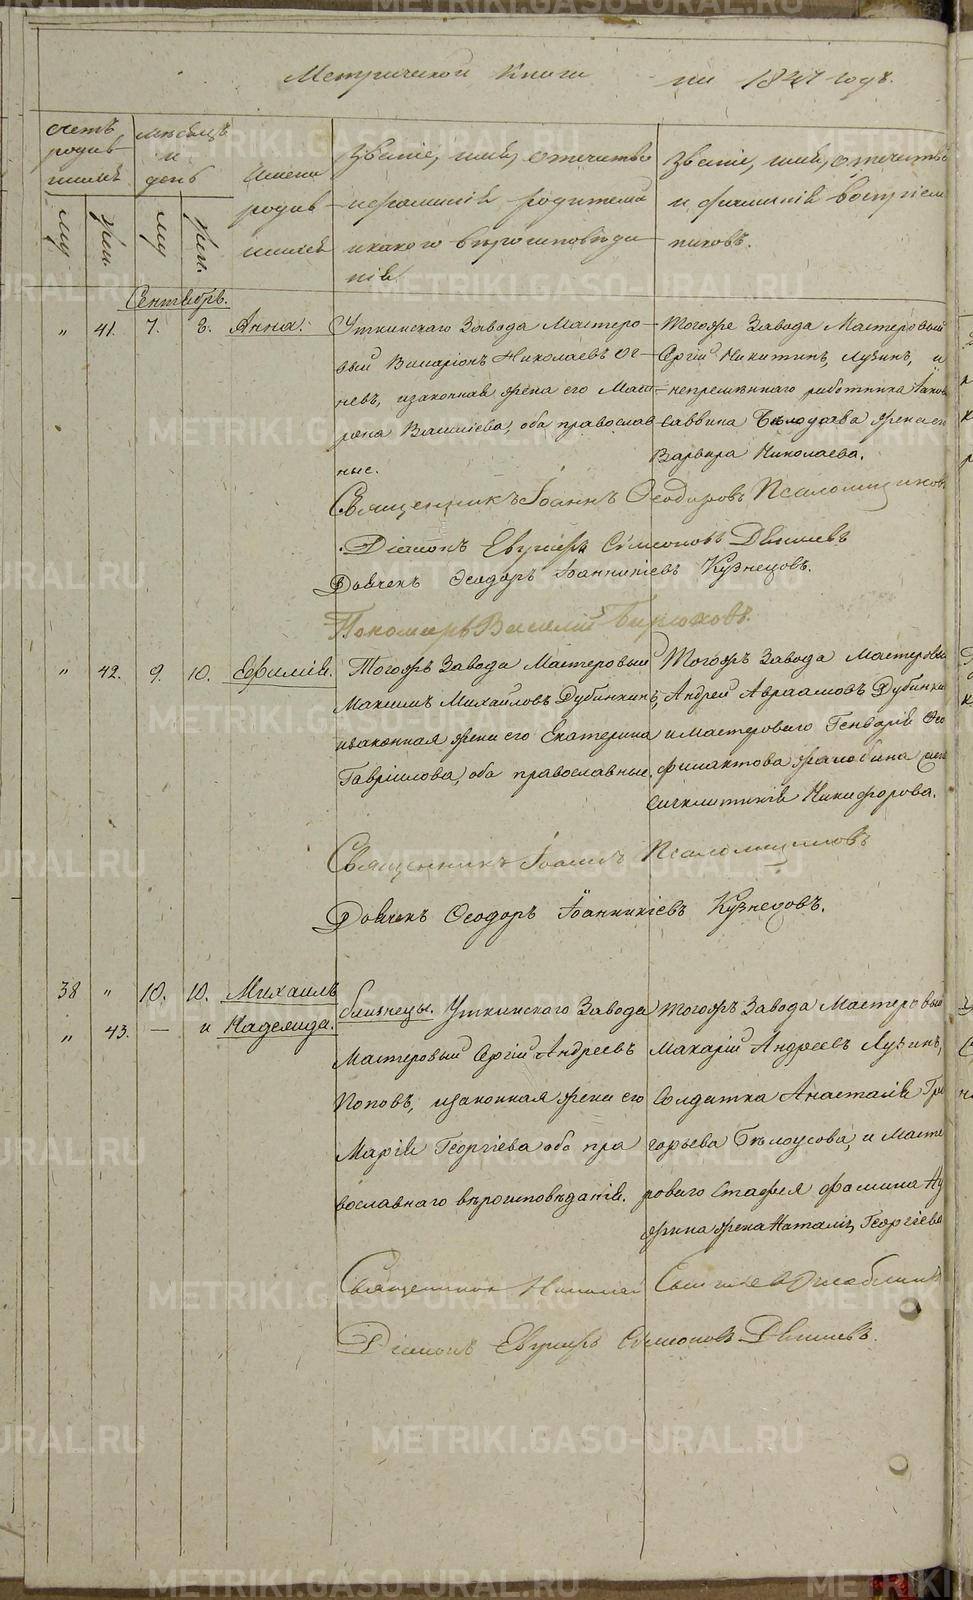 Метрической Книги на 1847 годъ.
Счетъ родившихся
Мѣсяцъ и день
Имена родившихся
Званіе, имя, отчество
и фамилія родителей
и какого вѣроисповѣда
нія
Званіе, имя, отчество
и фамилія воспріем
никовъ.
му.
жен.
му.
жен.
Сентябрь.
" 41. 7. 8. Анна.
Уткинскаго Завода Мастеро-
вый Иларіонъ Николаевъ Ог-
невъ, и законная жена его Мат
рона Васильева, оба православ
ные.
Тогоже Завода Мастеровый
Сергій Никитинъ, Лузинъ, и
непремѣннаго работника Іаков
Саввина Бѣлодѣева жена
Варвара Николаева.
Священникъ Іоаннъ Ѳеодоровъ Псаломщиковъ
Діаконъ Евгеній Сѷмеоновъ
Дьячекъ Ѳеодоръ Іоанникіевъ Кузнецовъ.
Пономарь Василій Бирюковъ.
" 42. 9. 10. Евфимія.
Тогожъ Завода Мастеровый
Максимъ Михайловъ Дубинкинъ,
и законная жена его Екатерина
Гавріилова, оба православные.
Тогожъ Завода Мастеровы
Андрей Авраамовъ Дубинки
и мастероваго Генварія Ѳео
филактова
Сигклитикія Никифорова.
Священникъ Іоаннъ Псаломщиковъ
Дьячекъ Ѳеодоръ Іоанникіевъ Кузнецовъ.
38 " 10. 10. Михаилъ
" 43. — и Надежда.
близнецы. Уткинского Завода
Мастеровый Сергій Андреевъ
Поповъ, и законная жена его
Марія Георгіева оба пра
вославнаго вѣроисповѣданія.
Тогожъ Завода Мастеровый
Макарій Андреевъ Лузинъ,
Солдатка Анастасія Гри
горьева Бѣлоусова, и Масте
роваго Ѳомина
жена Наталія Георгіева
Священникъ Николай
Діаконъ Евгеній Сѷмеоновъ
METRIKI.GASO-URAL.RU